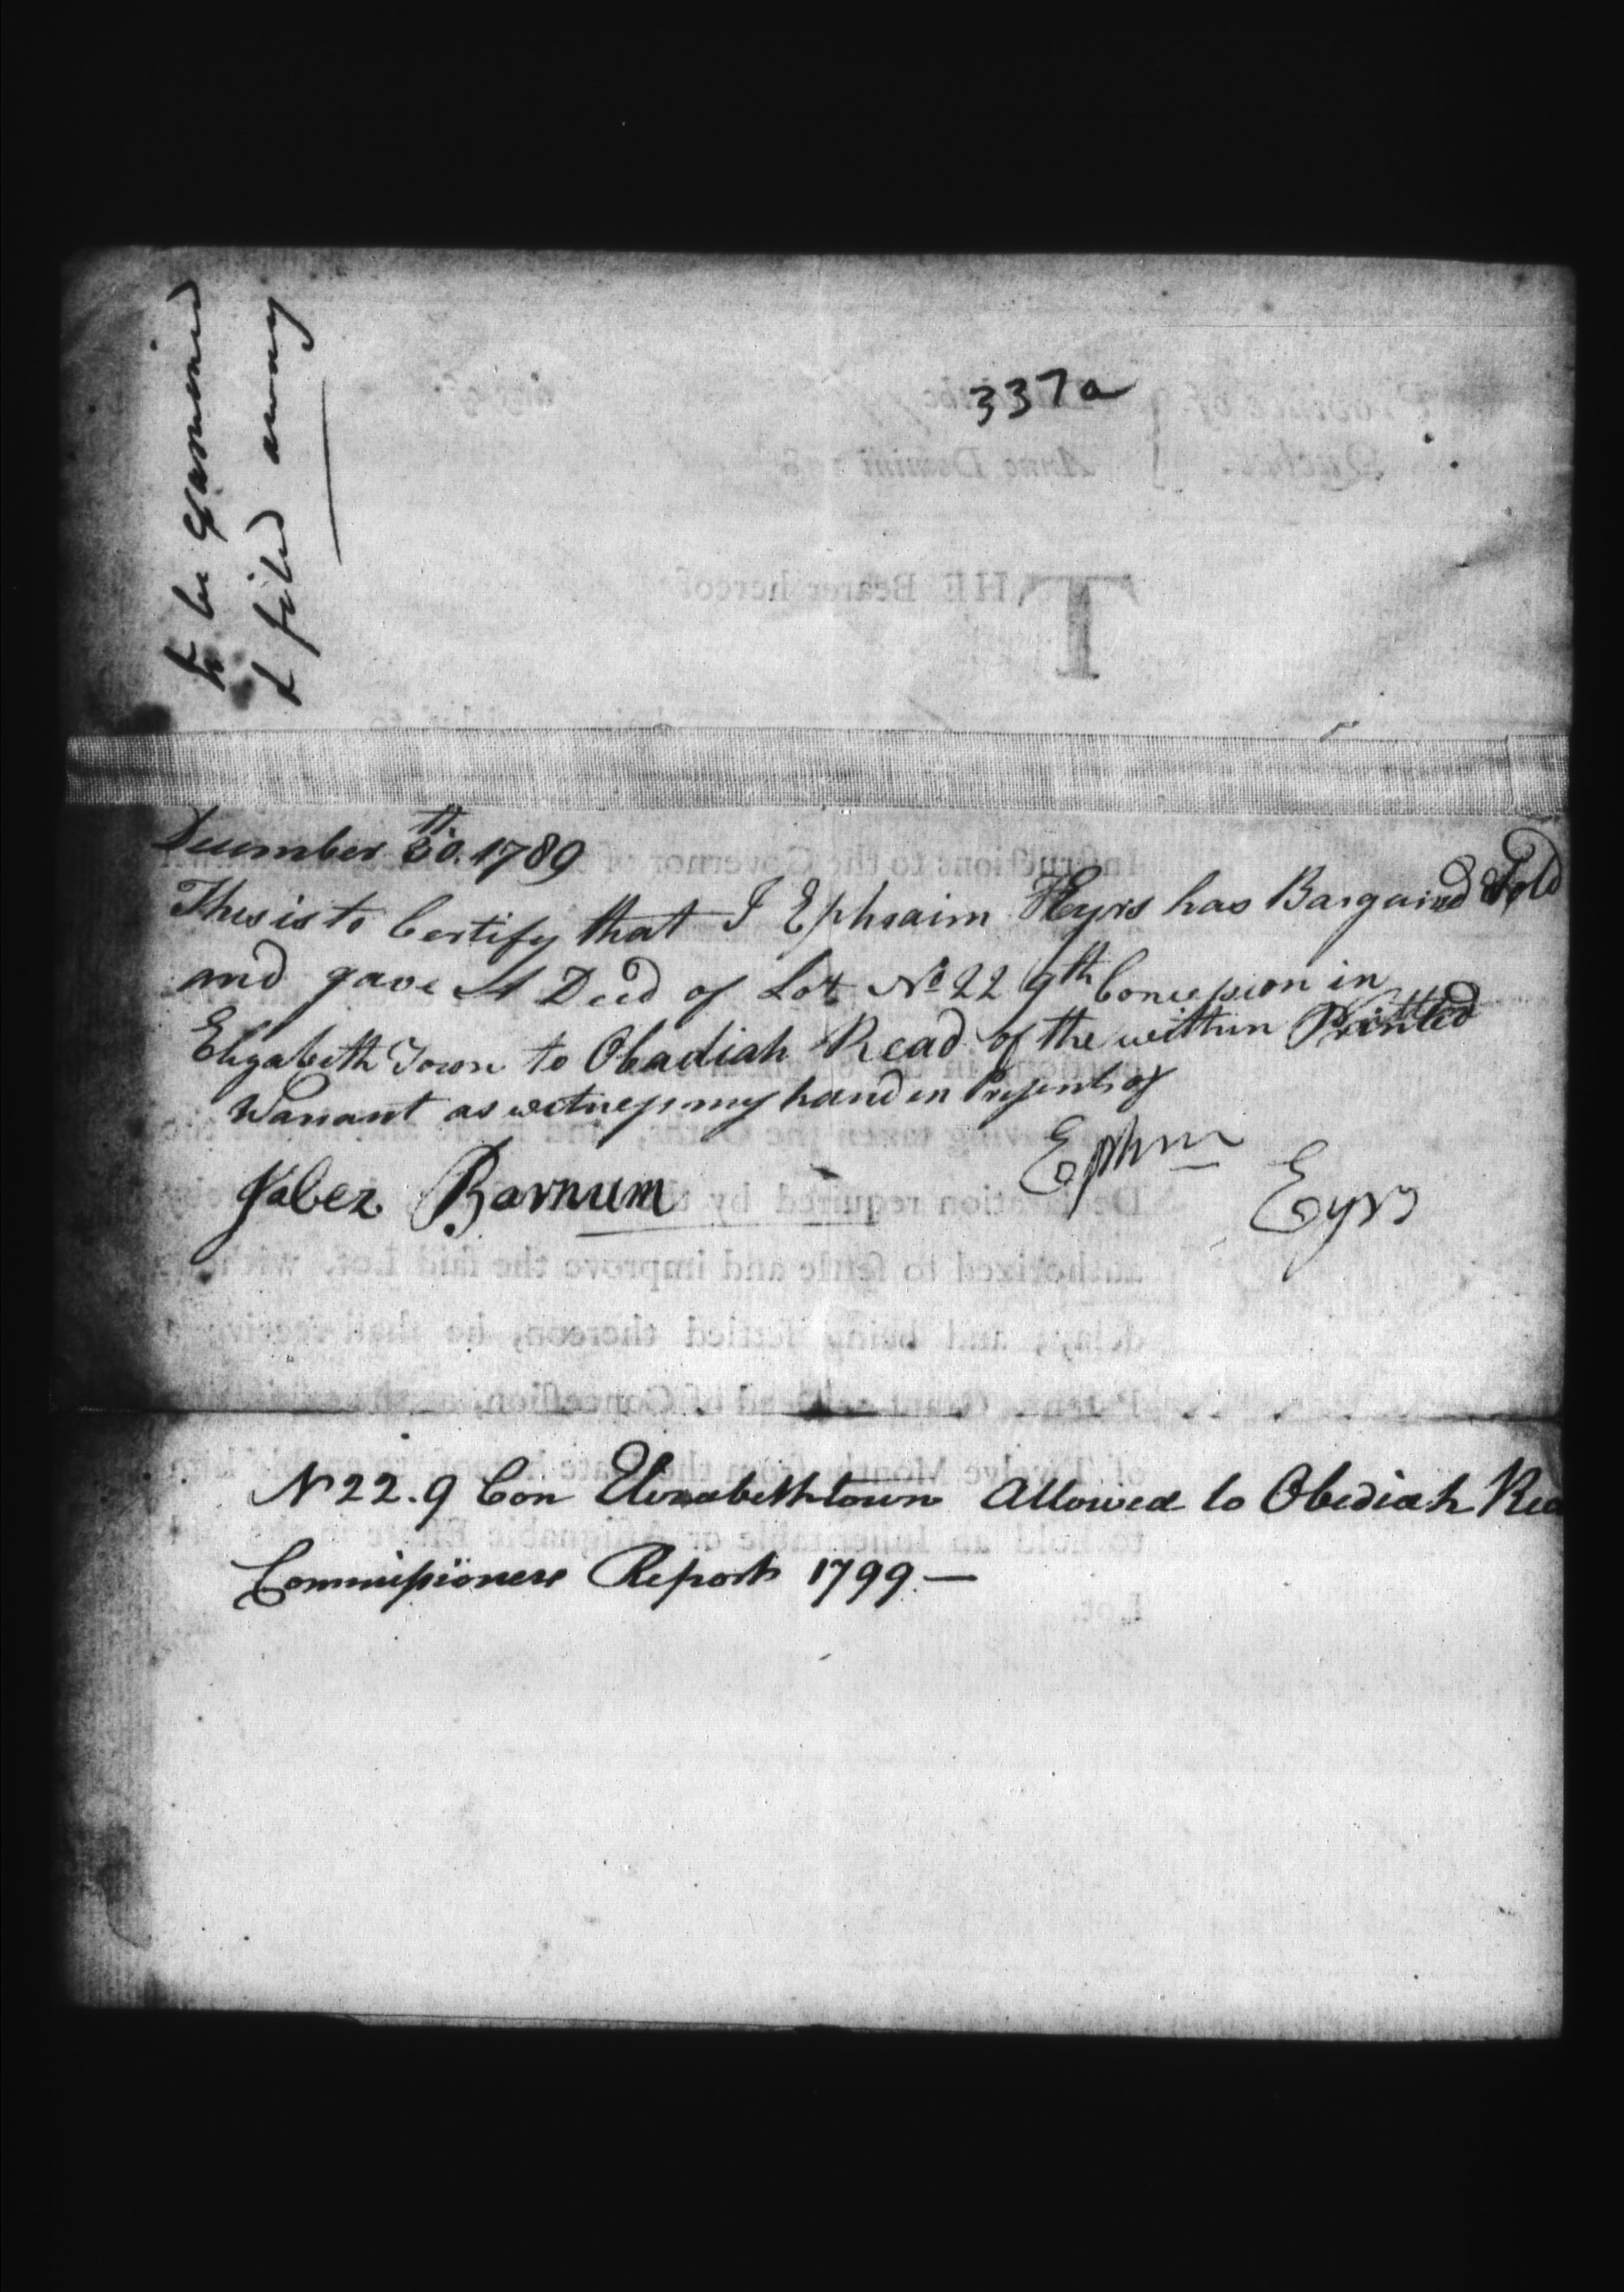 to be examined
& filed away
337a
December 30th. 1789
This is to Certify that I Ephraim Eyrs has Bargained & Sold
and gave A Deed of Lot No 22 9th Concession in
Elizabeth Town to Obadiah Read of the within Printed
Warrant as witness my hand in Presents of
Ephm Eyrs
Jabez Barnum
No 22. 9 Con Elizabethtown Allowed to Obediah Rea
Commissioners Report 1799 —